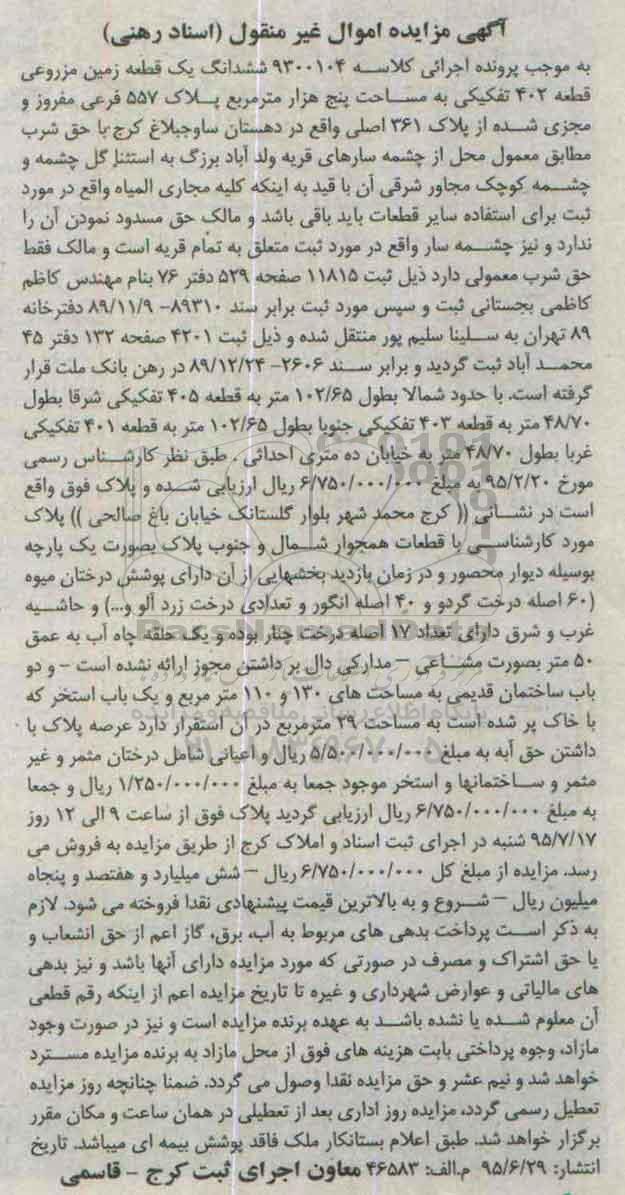 آگهی مزایده اموال غیر منقول (اسناد رهنی)
به موجب پرونده اجرائی کلاسه ۹۳۰۰۱۰۴ ششدانگ یک قطعه زمین مزروعی
قطعه ۴۰۲ تفکیکی به مساحت پنج هزار مترمربع پلاک ۵۵۷ فرعی مفروز و
مجزی شده از پلاک ۳۶۱ اصلی واقع در دهستان ساوجبلاغ کرج با حق شرب
مطابق معمول محل از چشمه سارهای قریه ولد آباد بزرگ به استثنا گل چشمه و
چشمه کوچک مجاور شرقی آن با قید به اینکه کلیه مجاری المیاه واقع در مورد
ثبت برای استفاده سایر قطعات باید باقی باشد و مالک حق مسدود نمودن آن را
ندارد و نیز چشمه سار واقع در مورد ثبت متعلق به تمام قریه است و مالک فقط
حق شرب معمولی دارد ذیل ثبت ۱۱۸۱۵ صفحه ۵۲۹ دفتر ۷۶ بنام مهندس کاظم
کاظمی بجستانی ثبت و سپس مورد ثبت برابر سند ۸۹۳۱۰- ۸۹/۱۱/۹ دفترخانه
۸۹ تهران به سلینا سلیم پور منتقل شده و ذیل ثبت ۴۲۰۱ صفحه ۱۳۲ دفتر ۴۵
محمد آباد ثبت گردید و برابر سند ۲۶۰۶- ۸۹/۱۲/۲۴ در رهن بانک ملت قرار
گرفته است. با حدود شمالا بطول ۱۰۲/۶۵ متر به قطعه ۴۰۵ تفکیکی شرقا بطول
۴۸/۷۰ متر به قطعه ۴۰۳ تفکیکی جنوبا بطول ۱۰۲/۶۵ متر به قطعه ۴۰۱ تفکیکی
غربا بطول ۴۸/۷۰ متر به خیابان ده متری احداثی . طبق نظر کارشناس رسمی
مورخ ۹۵/۲/۲۰ به مبلغ ۶/۷۵۰/۰۰۰/۰۰۰ ریال ارزیابی شده و پلاک فوق واقع
است در نشانی (( کرج محمد شهر بلوار گلستانک خیابان باغ صالحی )) پلاک
مورد کارشناسی با قطعات همجوار شمال و جنوب پلاک بصورت یک پارچه
بوسیله دیوار محصور و در زمان بازدید بخشهایی از آن دارای پوشش درختان میوه
(۶۰ اصله درخت گردو و ۴۰ اصله انگور و تعدادی درخت زرد آلو و...) و حاشیه
غرب و شرق دارای تعداد ۱۷ اصله درخت چنار بوده و یک حلقه چاه آب به عمق
۵۰ متر بصورت مشاعی – مدارکی دال بر داشتن مجوز ارائه نشده است - و دو
باب ساختمان قدیمی به مساحت های ۱۳۰ و ۱۱۰ متر مربع و یک باب استخر که
با خاک پر شده است به مساحت ۲۹ مترمربع در آن استقرار دارد عرصه پلاک با
داشتن حق آبه به مبلغ ۵/۵۰۰/۰۰۰/۰۰۰ ریال و اعیانی شامل درختان مثمر و غیر
مثمر و ساختمانها و استخر موجود جمعا به مبلغ ۱/۲۵۰/۰۰۰/۰۰۰ ریال و جمعا
به مبلغ ۶/۷۵۰/۰۰۰/۰۰۰ ریال ارزیابی گردید پلاک فوق از ساعت ۹ الی ۱۲ روز
۹۵/۷/۱۷ شنبه در اجرای ثبت اسناد و املاک کرج از طریق مزایده به فروش می
رسد. مزایده از مبلغ کل ۶/۷۵۰/۰۰۰/۰۰۰ ریال – شش میلیارد و هفتصد و پنجاه
میلیون ریال – شروع و به بالاترین قیمت پیشنهادی نقدا فروخته می شود. لازم
به ذکر است پرداخت بدهی های مربوط به آب، برق، گاز اعم از حق انشعاب و
یا حق اشتراک و مصرف در صورتی که مورد مزایده دارای آنها باشد و نیز بدهی
های مالیاتی و عوارض شهرداری و غیره تا تاریخ مزایده اعم از اینکه رقم قطعی
آن معلوم شده یا نشده باشد به عهده برنده مزایده است و نیز در صورت وجود
مازاد، وجوه پرداختی بابت هزینه های فوق از محل مازاد به برنده مزایده مسترد
خواهد شد و نیم عشر و حق مزایده نقدا وصول می گردد. ضمنا چنانچه روز مزایده
تعطیل رسمی گردد، مزایده روز اداری بعد از تعطیلی در همان ساعت و مکان مقرر
برگزار خواهد شد. طبق اعلام بستانکار ملک فاقد پوشش بیمه ای میباشد. تاریخ
انتشار: ۹۵/۶/۲۹ م.الف: ۴۶۵۸۳ معاون اجرای ثبت کرج - قاسمی